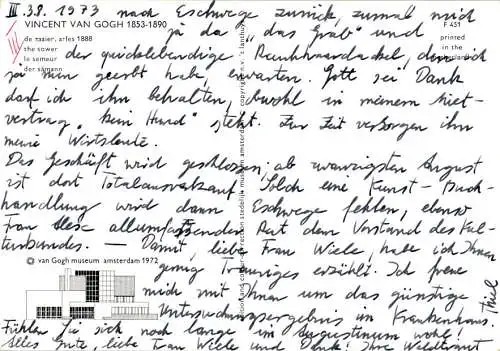 III 3.8.1973 nach Eschwege zurück, zumal mich
VINCENT VAN GOGH 1853-1890
ja da "das Grab" und
F 451
de zaaier, arles 1888
the sower
le semeur
der sämann
printed
in the
netherlands
der quicklebendige Rauhhaardackel, den ich
ja nun geerbt habe, erwarten. Gott sei Dank
darf ich ihn behalten, obwohl in meinem Miet-
vertrag "kein Hund" steht. Zur Zeit versorgen ihn
meine Wirtsleute.
Das Geschäft wird geschlossen; ab zwanzigsten August
ist dort Totalausverkauf. Solch eine Kunst- Buch-
handlung wird dann Eschwege fehlen, ebenso
Frau allumfassender Rat dem Vorstand des Kul-
turbundes. — Damit, liebe Frau Wiele, habe ich Ihnen
© van Gogh museum amsterdam 1972
genug Trauriges erzählt. Ich freue
mich mit Ihnen um das günstige
Untersuchungsergebnis im Krankenhaus.
Fühlen Sie sich noch lange im Augustinum wohl!
Alles Gute, liebe Frau Wiele und Dank! Ihre Waltraut
Thiel